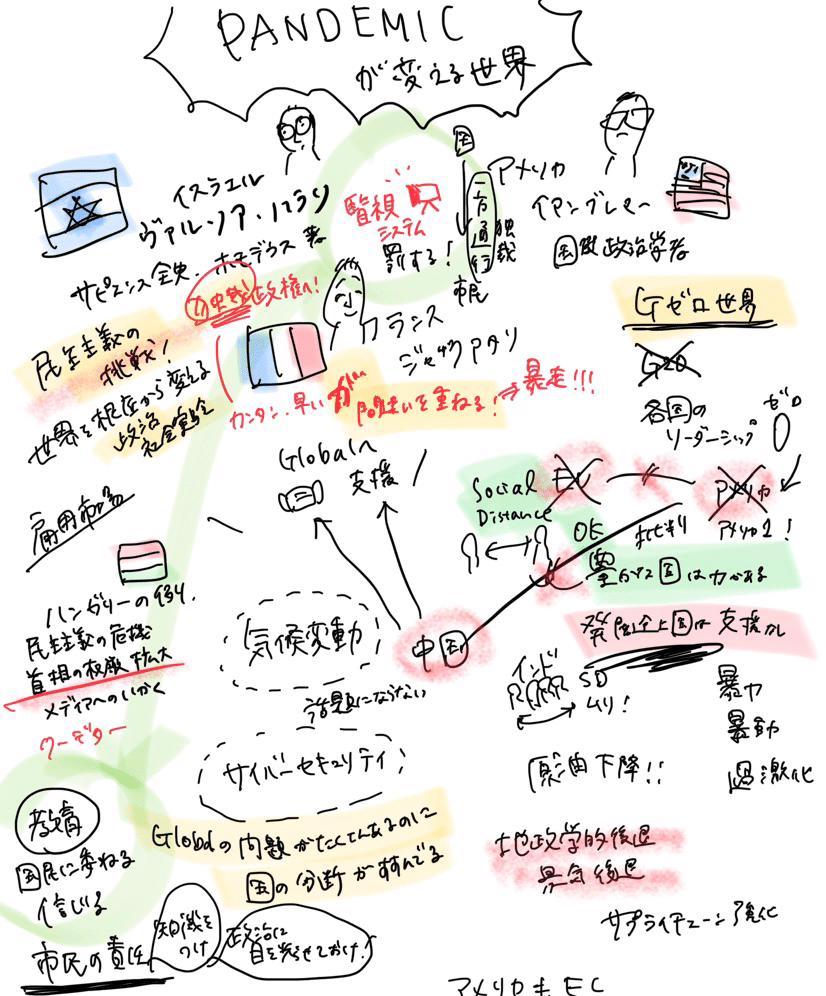 PANDEMIC
が変える世界
イスラエル
ヴァルノア・ハラリ
サピエンス全史、ホモデウス 著
監視
システム
罰する!
国
一方通行
独裁
市民
アメリカ
イアンブレマー
国際政治学者
独裁政権へ!
民主主義の
挑戦!
世界を根底から変える
政治
社会実験
フランス
ジャックアタリ
カンタン、早いが間違いを重ねる!⇒暴走!!!
Gゼロ世界
G20
各国の
リーダーシップ
ゼロ
0
Globalへ
支援
Social
Distance
EU
アメリカ
アメリカ1!
批判
OK
豊かな国は力がある
発展途上国は支援なし
雇用市場
ハンガリーの例。
民主主義の危機
首相の権限拡大
メディアへのいかく
クーデター
気候変動
話題にならない
中国
インド
SD
ムリ!
暴力
暴動
過激化
サイバーセキュリティ
原油下降!!
Globalの問題がたくさんあるのに
国の分断がすすんでる
地政学的後退
景気後退
サプライチェーン強化
教育
国民に委ねる
信じる
市民の責任
知識を
つけ
政治に
目を光らせておけ!
アメリカもEC